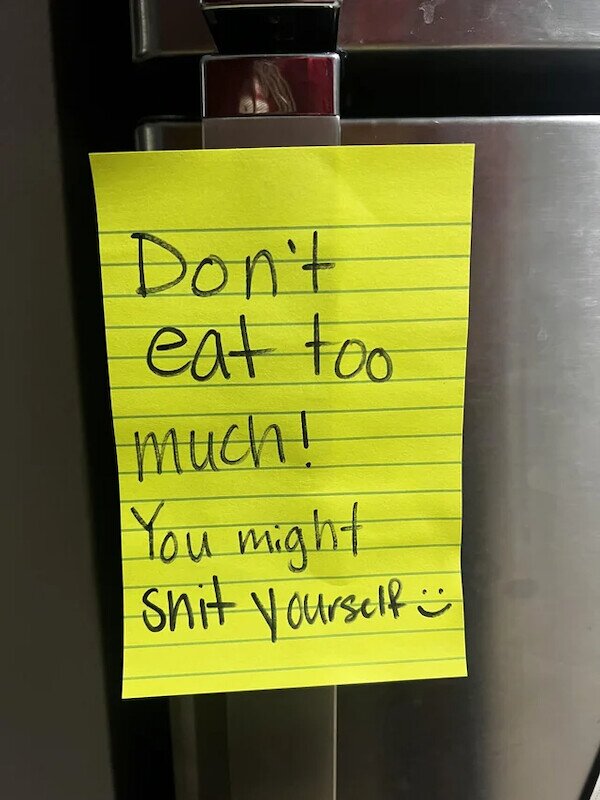 Don't
eat too
much!
You might
shit yourself :)